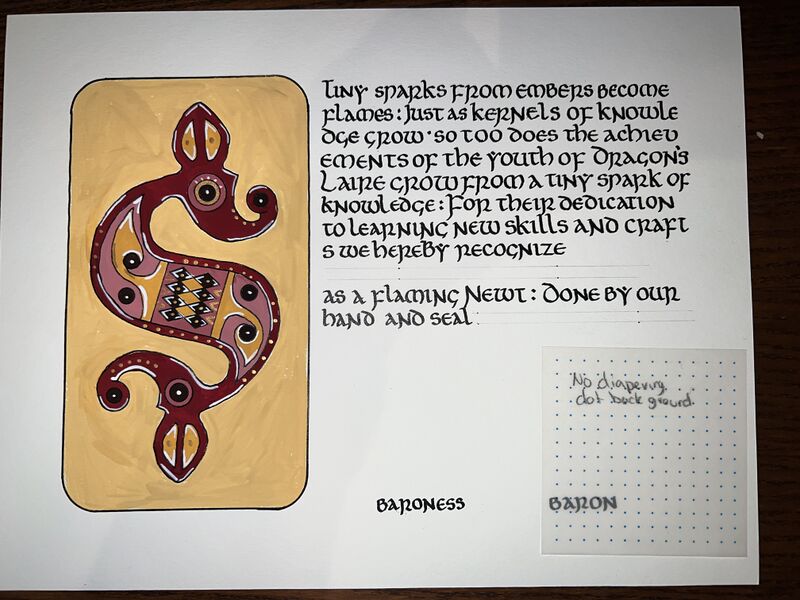 Tiny sparks from embers become
flames: Just as kernels of knowle
dge grow · so too does the achiev
ements of the youth of Dragon's
Laire grow from a tiny spark of
knowledge: For their dedication
to learning new skills and craft
s we hereby recognize
as a Flaming Newt: Done by our
hand and seal
No diapering
dot back ground.
BARONESS
BARON